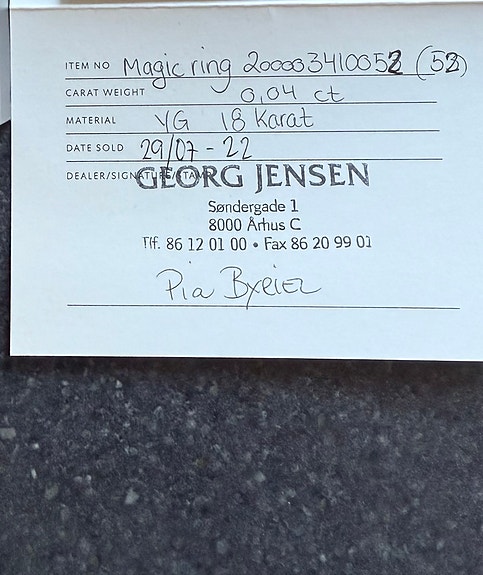 ITEM NO Magic ring 200003410052 (52)
CARAT WEIGHT 0,04 ct
MATERIAL YG 18 Karat
DATE SOLD 29/07 - 22
DEALER/SIGNATURE/STAMP GEORG JENSEN
Søndergade 1
8000 Århus C
Tlf. 86 12 01 00 • Fax 86 20 99 01
Pia